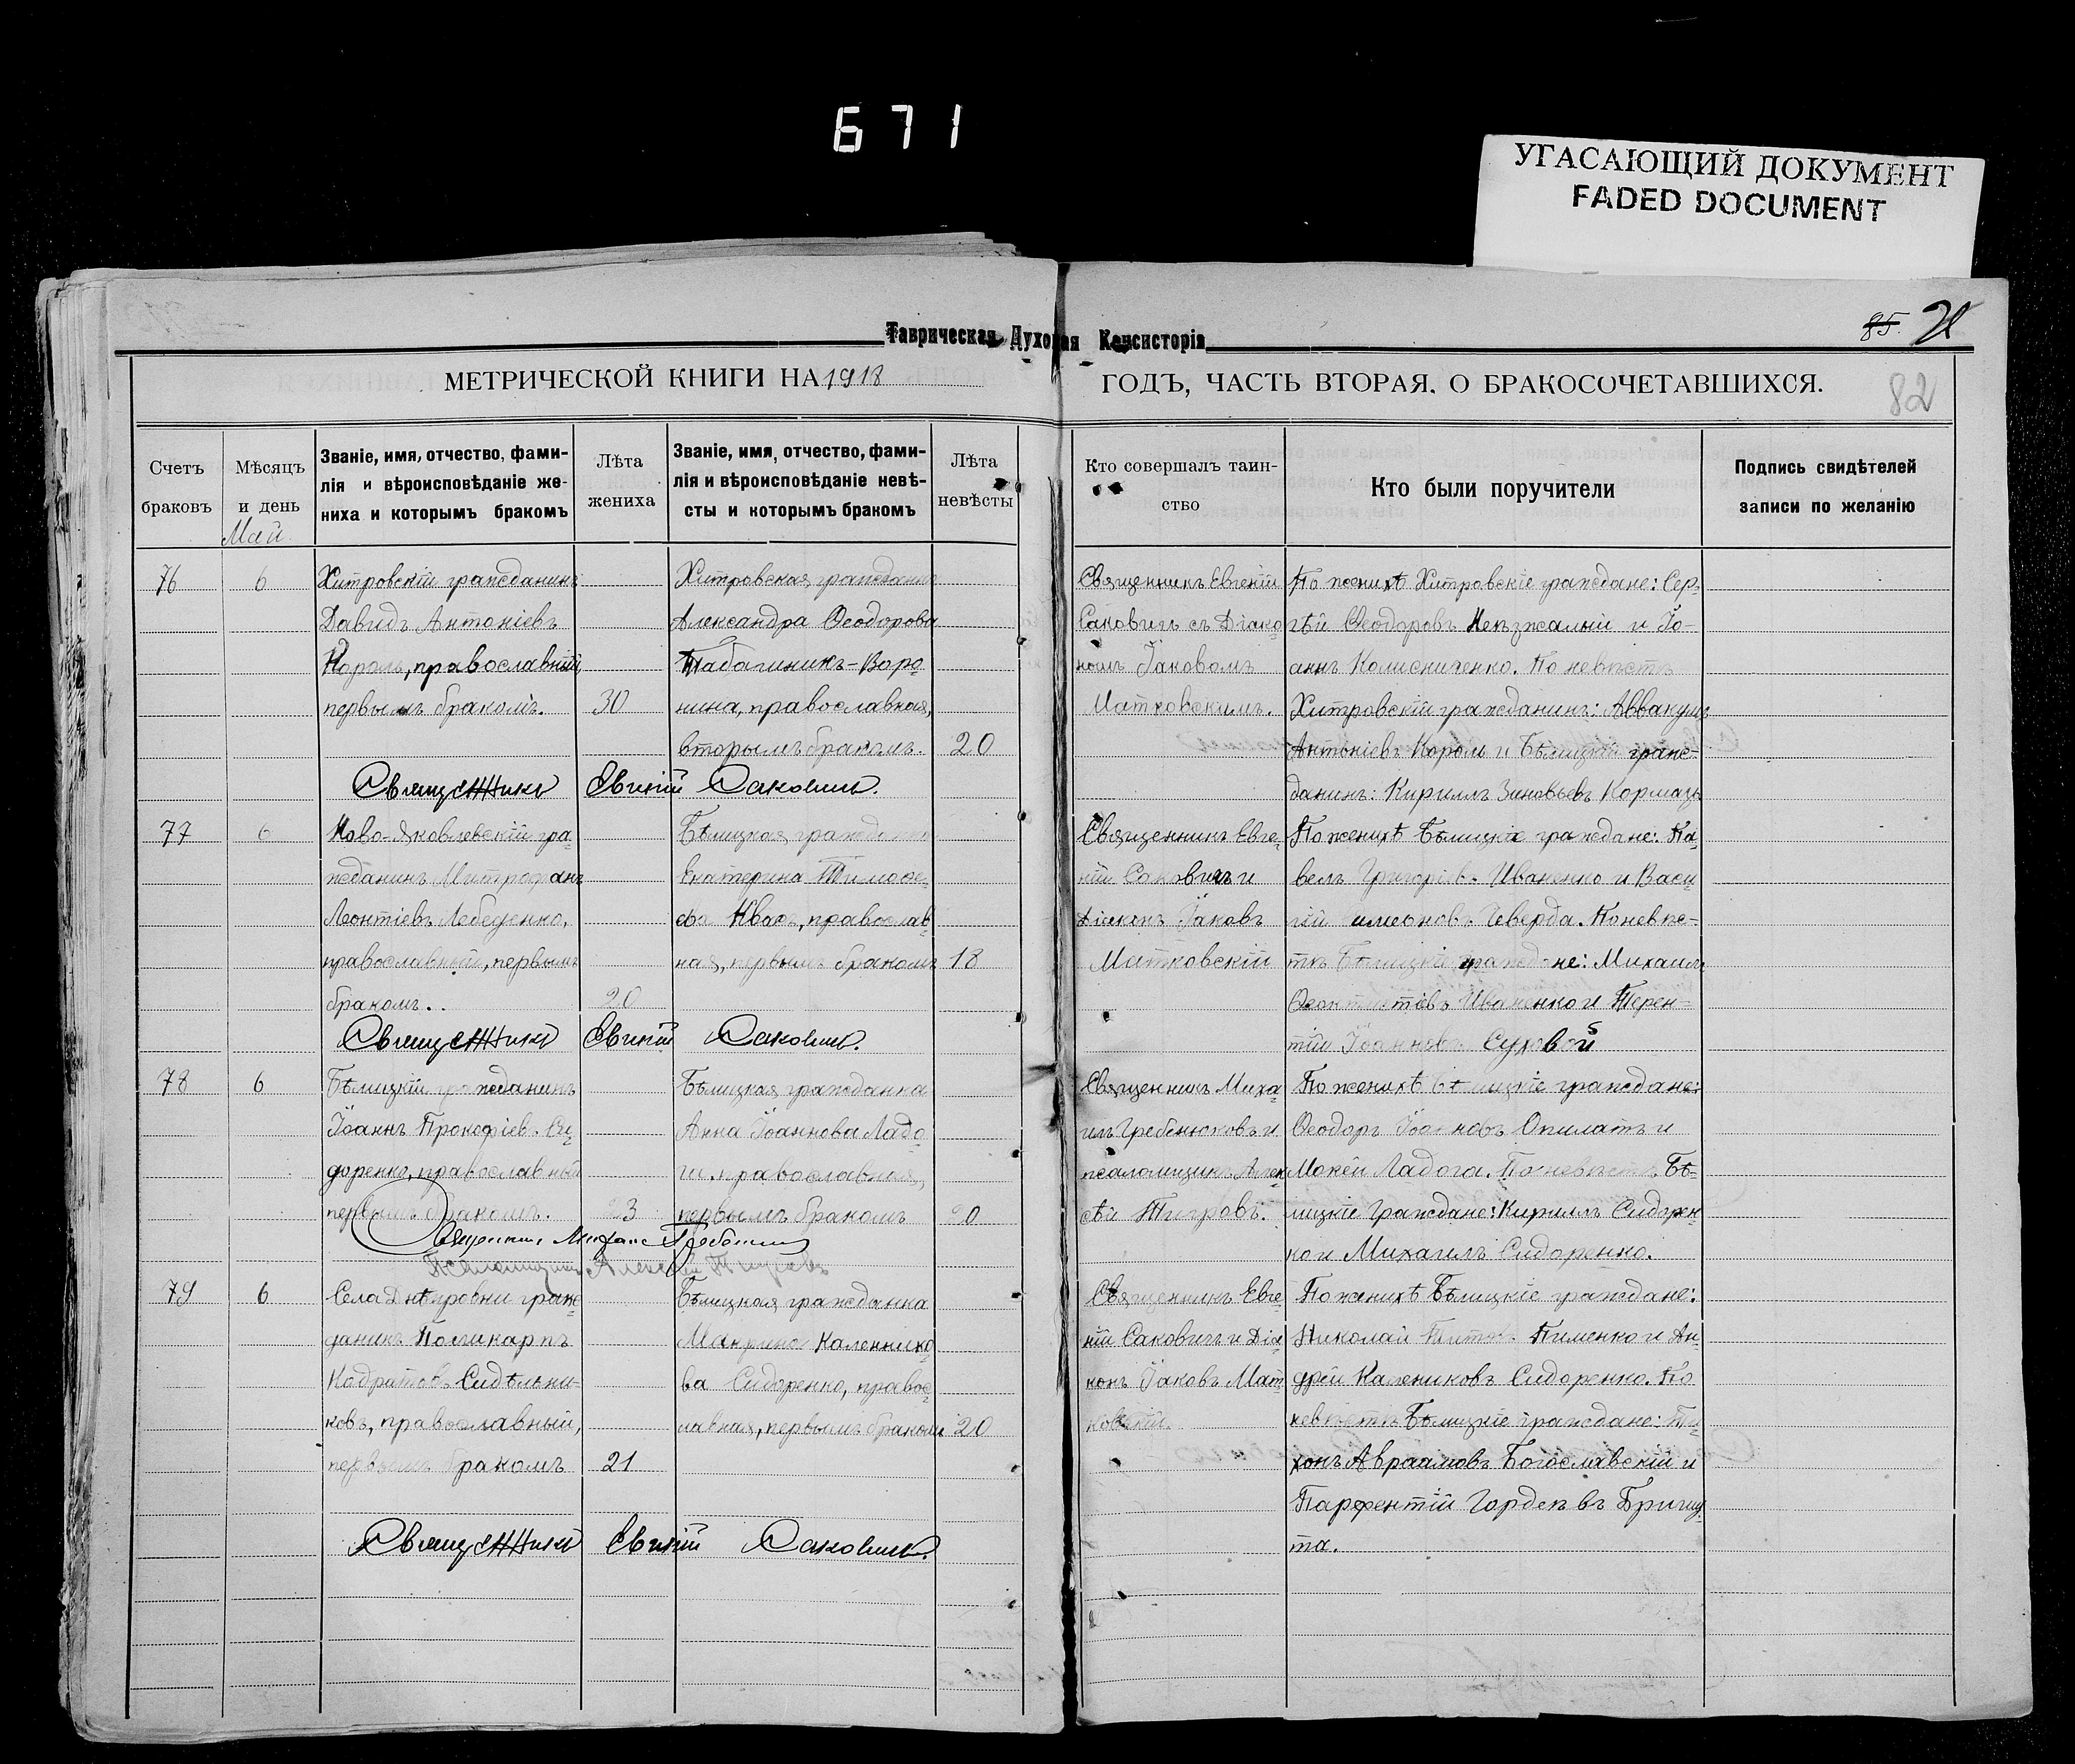 671
УГАСАЮЩИЙ ДОКУМЕНТ
FADED DOCUMENT
85.
Таврическая Духовная Консисторія
МЕТРИЧЕСКОЙ КНИГИ НА 1918
ГОДЪ, ЧАСТЬ ВТОРАЯ. О БРАКОСОЧЕТАВШИХСЯ.
82
Счетъ браковъ
Мѣсяцъ и день
Май
Званіе, имя, отчество, фами-
лія и вѣроисповѣданіе же-
ниха и которымъ бракомъ
Лѣта жениха
Званіе, имя, отчество, фами-
лія и вѣроисповѣданіе невѣ-
сты и которымъ бракомъ
Лѣта невѣсты
Кто совершалъ таин-
ство
Кто были поручители
Подпись свидѣтелей
записи по желанію
76
6
Хитровскій гражданинъ
Давидъ Антоніевъ
Король, православный
первымъ бракомъ.
30
Хитровская гражданка
Александра Ѳеодорова
Табачникъ-Воро
нина, православная,
вторымъ бракомъ.
20
Священникъ Евгеній
Саковичъ съ Діако
номъ Іаковомъ
Матковскимъ.
По женихѣ Хитровскіе граждане: Сер-
гѣй Ѳеодоровъ Неѣзжалый и Іо-
аннъ Колисниченко. По невѣстѣ
Хитровскій гражданинъ: Аввакумъ
Антоніевъ Король и Бѣлицкій граж-
данинъ: Кириллъ Зиновьевъ Кормазь
Священникъ Евгеній Саковичъ.
77
6
Ново-Яковлевскій гра-
жданинъ Митрофанъ
Леонтіевъ Лебеденко,
православный, первымъ
бракомъ.
20
Бѣлицкая гражданка
Екатерина Тимоѳе-
ева Квась, православ-
ная, первымъ бракомъ
18
Священникъ Евге-
ній Саковичъ и
Діаконъ Іаковъ
Матковскій
По женихѣ Бѣлицкіе граждане: Па-
велъ Григоріевъ Иваненко и Васи
лій Симеоновъ Чеверда. По невѣс-
тѣ Бѣлицкіе граждане: Михаилъ
Ѳеоктистовъ Иваненко и Терен-
тій Іоанновъ Суховой
Священникъ Евгеній Саковичъ.
78
6
Бѣлицкій гражданинъ
Іоаннъ Прокофіевъ Си-
доренко, православный
первымъ бракомъ.
23
Бѣлицкая гражданка
Анна Іоаннова Ладо
ги, православная,
первымъ бракомъ
20
Священникъ Миха-
илъ Гребенюковъ и
псаломщикъ Алек
сѣй Тигровъ.
По женихѣ Бѣлицкіе граждане:
Ѳеодоръ Іоанновъ Опилатъ и
Мокей Ладога. По невѣстѣ Бѣ-
лицкіе граждане: Кириллъ Сидорен
ко и Михаилъ Сидоренко.
Священникъ Михаилъ
Псаломщикъ Алексѣй Тигровъ
79
6
Села Днѣпровки граж
данинъ Поликарпъ
Кодратовъ Сидѣльни-
ковъ, православный,
первымъ бракомъ
21
Бѣлицкая гражданка
Макрина Каленнико-
ва Сидоренко, правос-
лавная, первымъ бракомъ
20
Священникъ Евге-
ній Саковичъ и Діа
конъ Іаковъ Мат
ковскій.
По женихѣ Бѣлицкіе граждане:
Николай Титовъ Пименко и Ан-
дрей Калениковъ Сидоренко. По
невѣстѣ Бѣлицкіе граждане: Ти
хонъ Авраамовъ Богославскій и
Парфентій Гордѣевъ Бригиц
та.
Священникъ Евгеній Саковичъ.